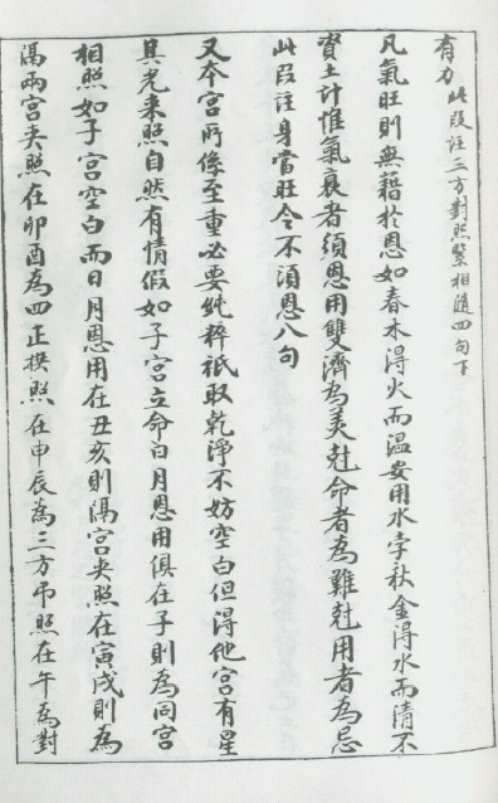 有力 此段注三方對照緊相隨四句下
凡氣旺則無藉於恩如春木得火而温安用水孛秋金得水而清不
資土計惟氣衰者須恩用雙濟為美尅命者為難尅用者為忌
此段註身當旺令不須恩八句
又本宮所係至重必要純粹祇取乾淨不妨空白但得他宮有星
其光來照自然有情假如子宮立命日月恩用俱在子則為同宮
相照如子宮空白而日月恩用在丑亥則隔宮夾照在寅戌則為
隔兩宮夾照在卯酉為四正拱照在申辰為三方弔照在午為對